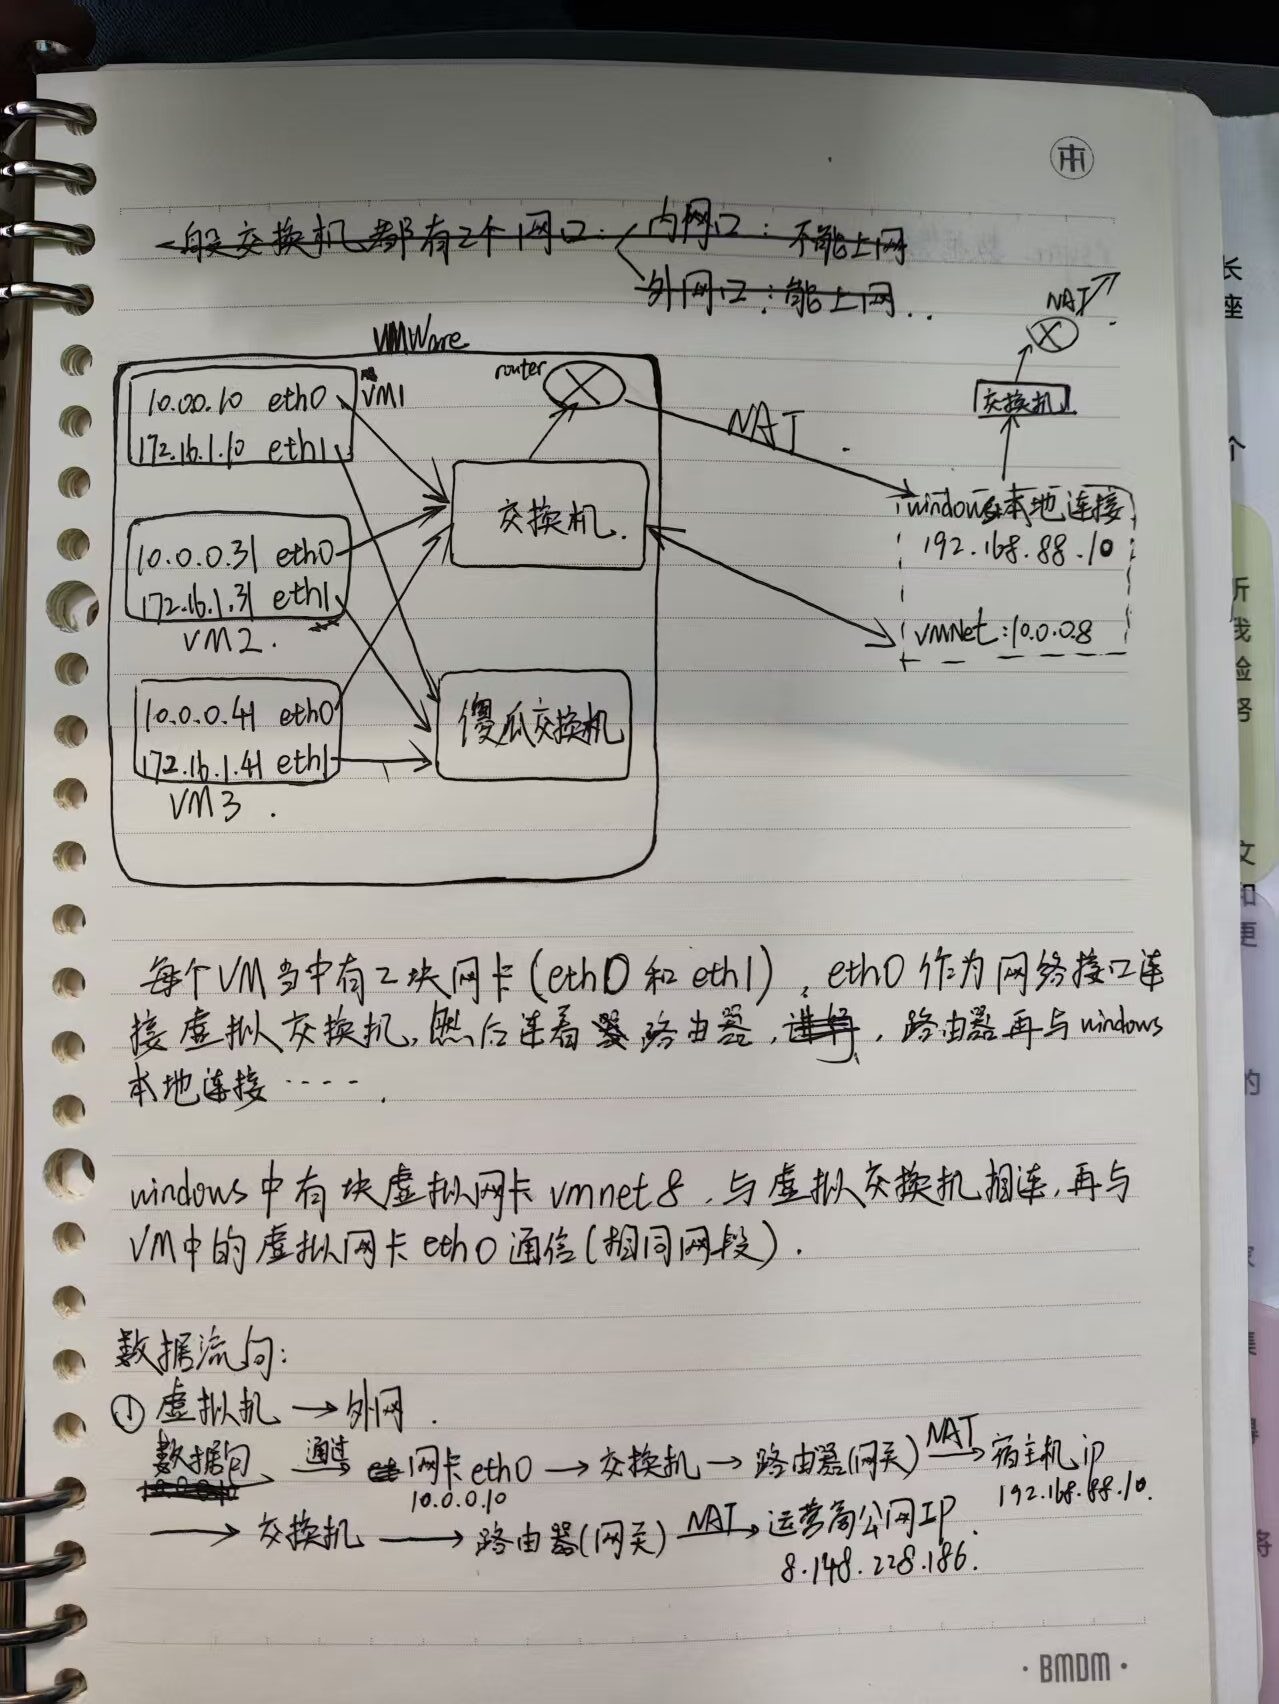 一般交换机都有2个网口:
内网口:不能上网
外网口:能上网..
NAT
交换机
VMWare
router
10.00.10 eth0
172.16.1.10 eth1
VM1
NAT
交换机.
windows本地连接
192.168.88.10
10.0.0.31 eth0
172.16.1.31 eth1
VM2.
vmNet:10.0.08
10.0.0.41 eth0
172.16.1.41 eth1
VM3.
傻瓜交换机
每个VM当中有2块网卡(eth0和eth1),eth0作为网络接口连
接虚拟交换机,然后连着路由器,进行,路由器再与windows
本地连接·····.
windows中有块虚拟网卡vmnet8,与虚拟交换机相连,再与
VM中的虚拟网卡eth0通信(相同网段).
数据流向:
①虚拟机→外网.
数据包 通过→ 网卡eth0→交换机→路由器(网关) NAT→宿主机ip
10.0.0.10
10.0.0.10
192.168.88.10.
→交换机→路由器(网关) NAT→运营商公网IP.
8.148.228.186.
·BMDM·